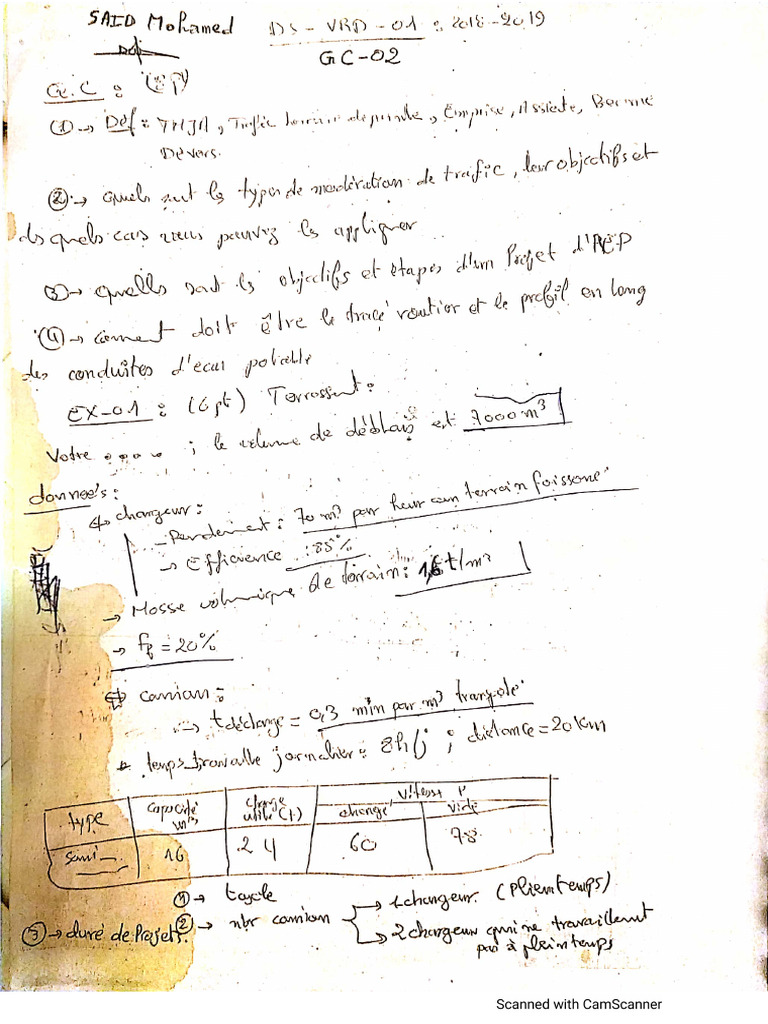 SAID Mohamed
DS-VRD-01 : 2018-2019
GC-02
Q.C :
①→ Def : TMJA, Trafic , Emprise, Assiette, Berme
Dévers.
②→ quels sont les types de modération de trafic, leur objectifs et
des quels cas vous pouvez les appliquer
③→ quelles sont les objectifs et étapes d'un Projet d'AEP
④→ comment doit être le tracé routier et le profil en long
des conduites d'eau potable
EX-01 : (6pt) Terrassent :
Votre .... ; le volume de déblais est 7000 m³
données :
chargeur :
- Rendement : 70 m³ par heur en terrain foisonné
→ Efficience : 85%
→ Masse volumique de terrain : 1,6 t/m³
→ = 20%
camion :
→ tdécharge = 0,3 min par m³ transporté
temps travaille journalier : 8h/j ; distance = 20 km
type
capacité m³
charge utile (t)
vitesse
chargé
vide
semi-
16
24
60
78
①→ tcycle
②→ nbr camion
→ 1 chargeur. (plein temps)
→ 2 chargeur qui ne travaillent
pas à plein temps
③→ duré de Projets.
Scanned with CamScanner